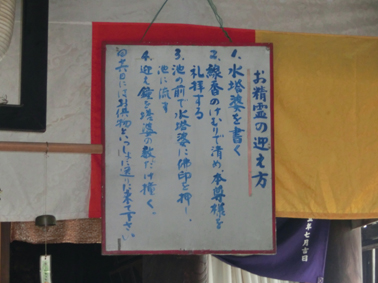 お精霊の迎え方
1. 水塔婆を書く
2. 線香のけむりで清め本尊様を
礼拝する
3. 池の前で水塔婆に佛印を押し、
池に流す
4. 迎え鐘を塔婆の数だけ撞く。
十六日にはお供物といっしょに送りに来て下さい
年七月吉日